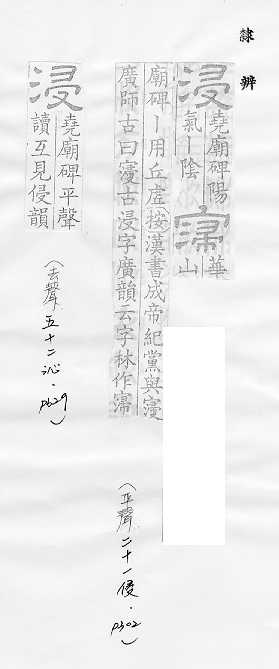 隸辨
浸 堯廟碑陽
氣丨陰
𡫏 華
山
廟碑丨用丘虛按漢書成帝紀黨與寖
廣師古曰寖古浸字廣韻云字林作𡫏
浸 堯廟碑平聲
讀互見侵韻
(平聲二十一侵．p302)
(去聲五十二沁．p629)